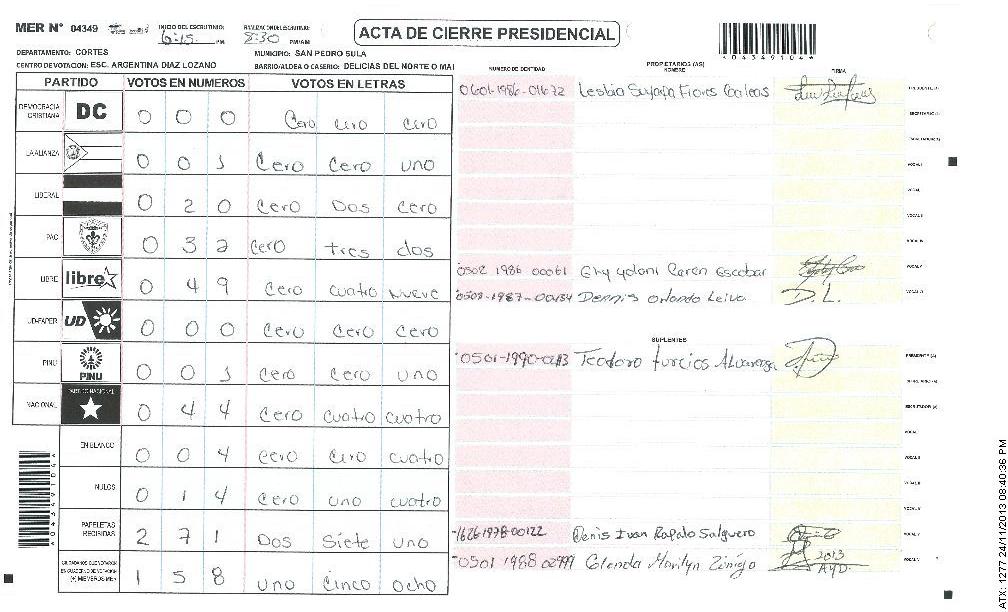 MER N° 04349 INICIO DEL ESCRUTINIO: 6:15 PM 8:30 PM/AM
ACTA DE CIERRE PRESIDENCIAL
*04349104*
DEPARTAMENTO: CORTES MUNICIPIO: SAN PEDRO SULA
CENTRO DE VOTACION: ESC. ARGENTINA DIAZ LOZANO BARRIO/ALDEA O CASERIO: DELICIAS DEL NORTE O MAI
PARTIDO VOTOS EN NUMEROS VOTOS EN LETRAS
DEMOCRACIA CRISTIANA DC 0 0 0 Cero cero cero
LA ALIANZA 0 0 1 Cero Cero uno
LIBERAL 0 2 0 Cero Dos cero
PAC 0 3 2 Cero tres dos
LIBRE libre 0 4 9 Cero cuatro nueve
UD-FAPER UD 0 0 0 Cero Cero Cero
PINU PINU 0 0 1 Cero Cero uno
NACIONAL PARTIDO NACIONAL 0 4 4 Cero cuatro cuatro
EN BLANCO 0 0 4 cero cero cuatro
NULOS 0 1 4 Cero uno cuatro
PAPELETAS RECIBIDAS 2 7 1 Dos Siete uno
CIUDADANOS QUE VOTARON EN CUADERNO DE VOTACION (+) MIEMBROS MER 1 5 8 uno Cinco ocho
*04349104*
NUMERO DE IDENTIDAD PROPIETARIOS (AS) NOMBRE FIRMA
0601-1986-01672 Lesbia Suyapa Flores PRESIDENTE(A)
SECRETARIO(A)
ESCRUTADOR(A)
VOCAL I
VOCAL
VOCAL II
VOCAL IV
0502 1986 00061 Escobar VOCAL V
0508-1987-00434 Dennis Orlando Leiva D.L. VOCAL
SUPLENTES
Teodoro Turcios Alvarenga PRESIDENTE (A)
SECRETARIO(A)
ESCRUTADOR (A)
VOCAL
VOCAL II
VOCAL III
VOCAL IV
1626 1978-00122 Denis Ivan Salguero VOCAL V
0501 1988 Marilyn Zúniga 2013 VOCAL
ATX: 1277 24/11/2013 08:40:36 PM